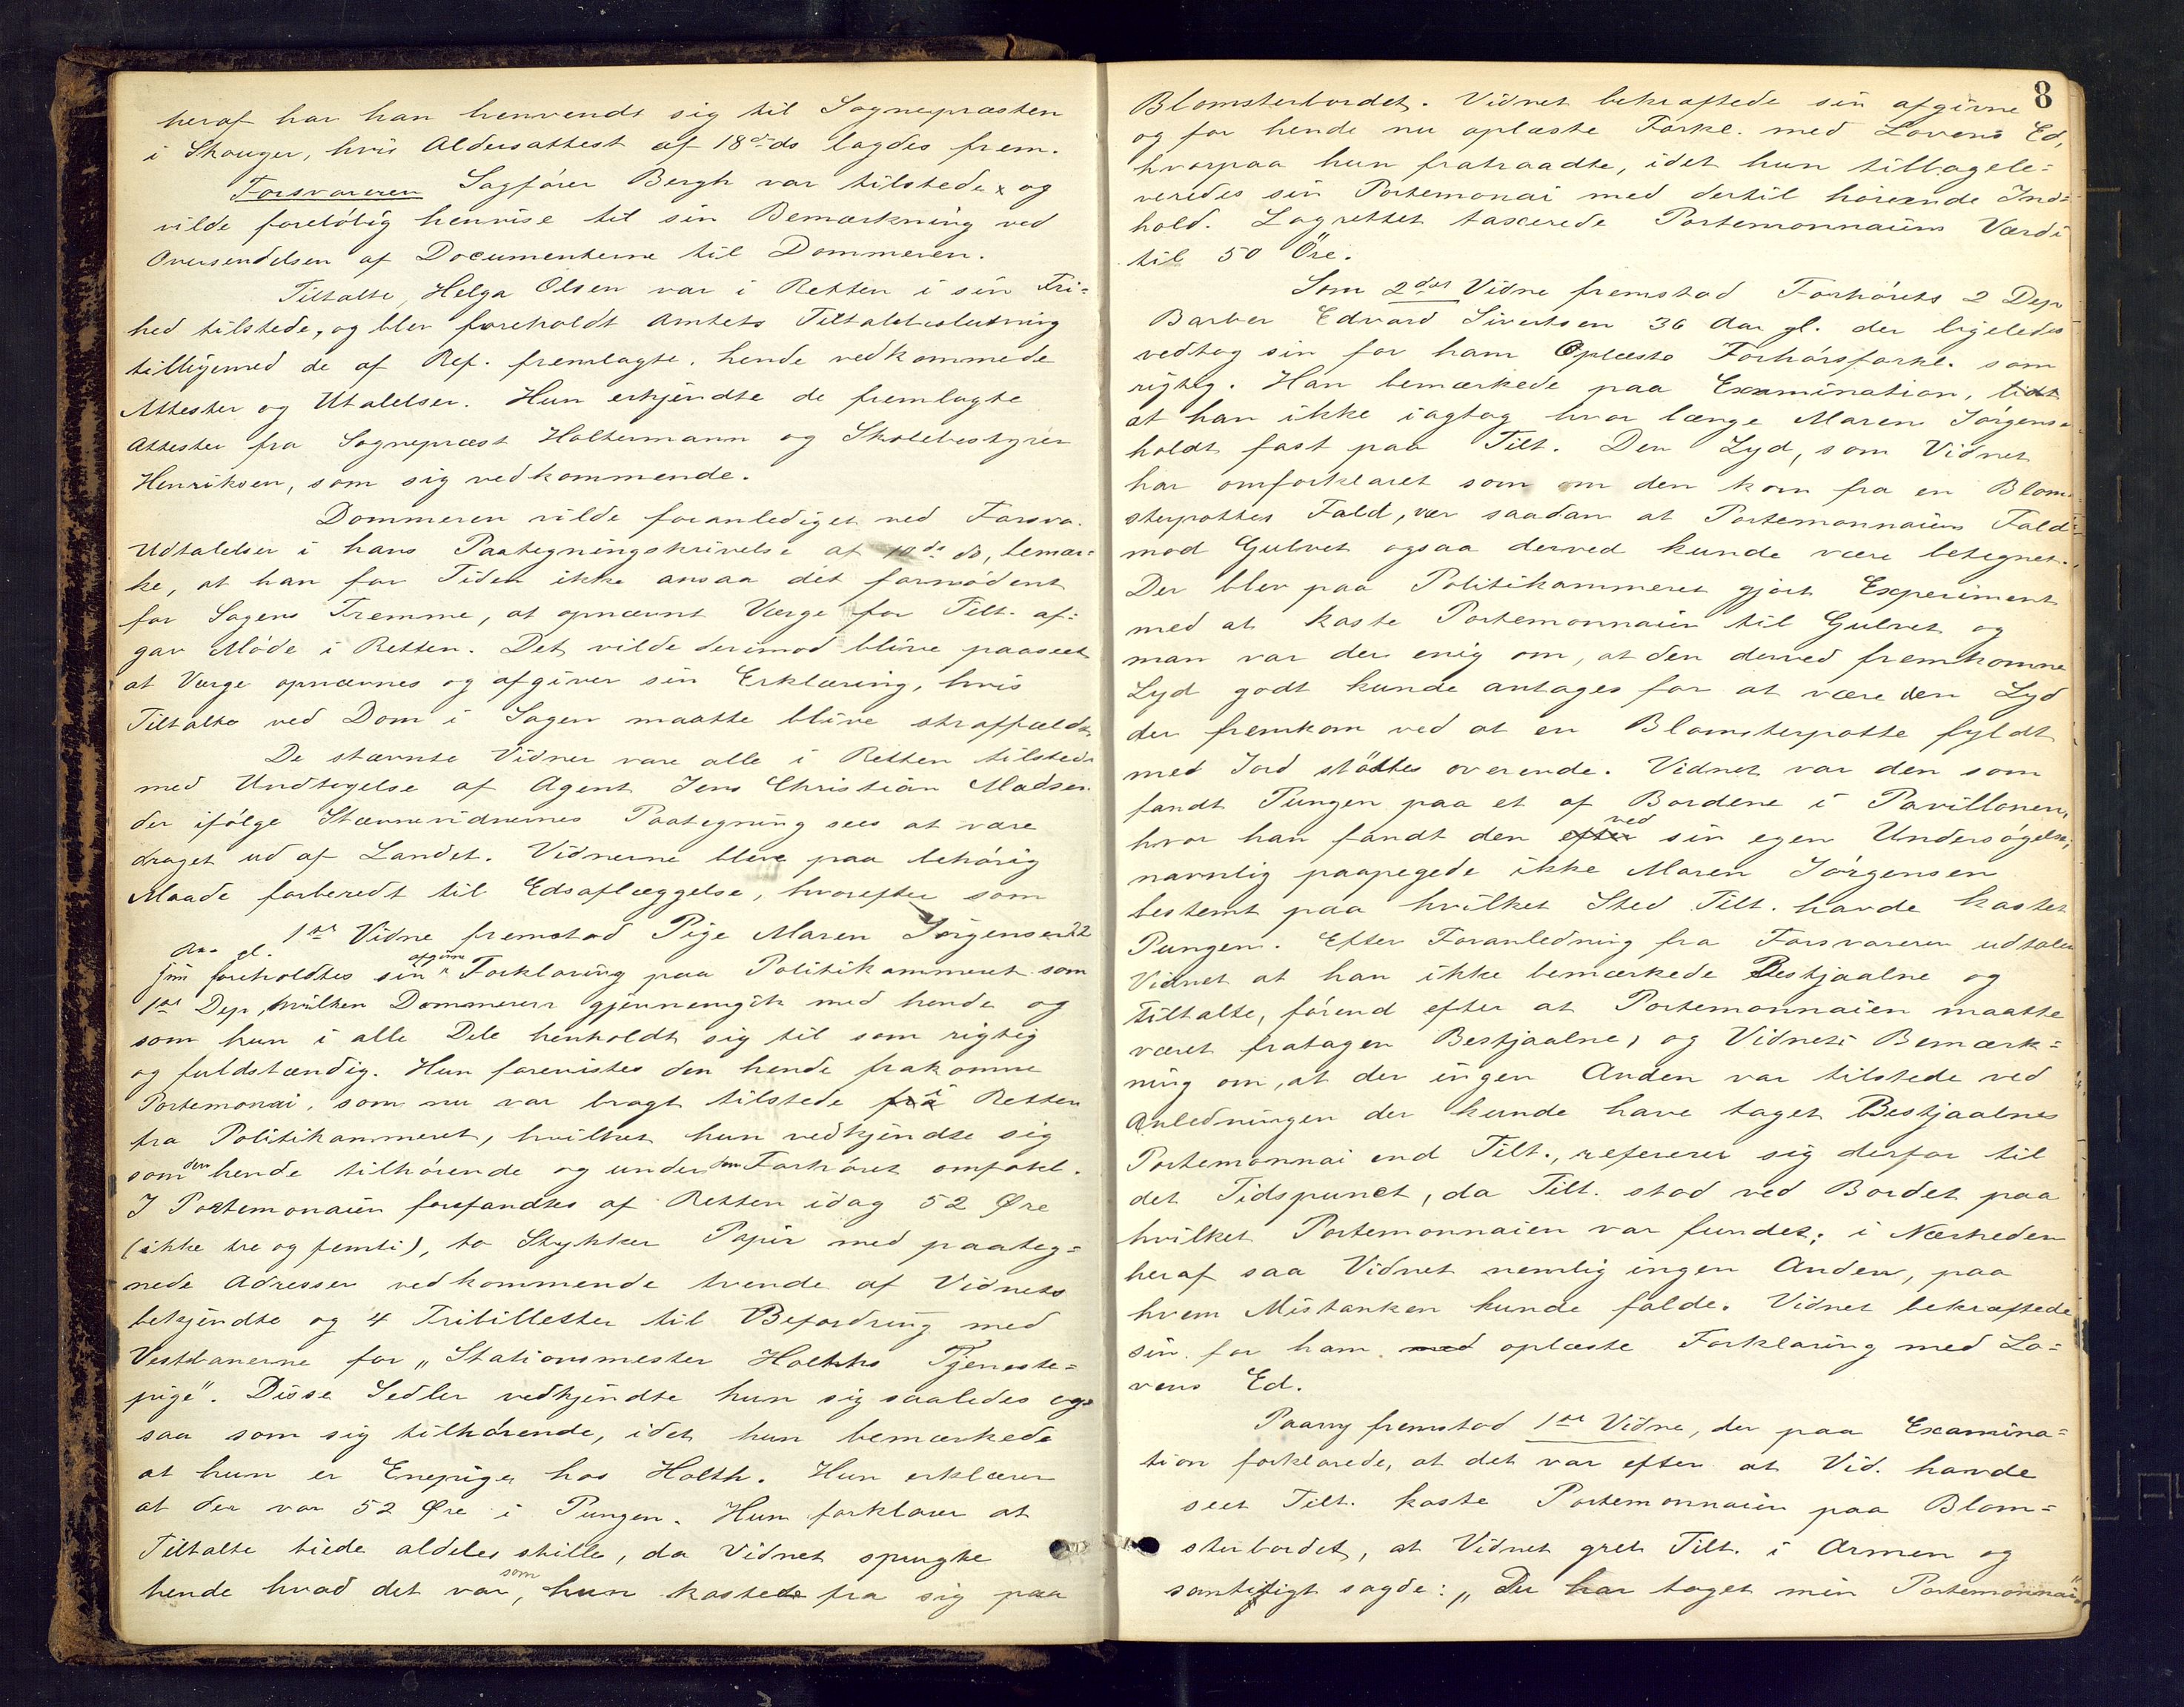 heraf har han henvendt sig til Sognepræsten
i Skouger, hvis Aldersattest af 18de ds lagdes frem.
Forsvareren Sagfører Bergh var tilstede og
vilde foreløbig henvise til sin Bemærkning ved
Oversendelsen af Documenterne til Dommeren.
Tiltalte, Helga Olsen var i Retten i sin Fri-
hed tilstede, og blev foreholdt Amtets Tiltalebeslutning
tilligemed de af Ref. fremlagte, hende vedkommede
Attester og Utalelser. Hun erkjendte de fremlagte
Attester fra Sognepræst Holtermann og Skolebestyrer
Henriksen, som sig vedkommende.
Dommeren vilde foranlediget ved Forsva.
Udtalelser i hans Paategningskrivelse af 10de ds, bemær-
ke, at han for Tiden ikke ansaa det fornødent
for Sagens Fremme, at opnævnt Værge for Tilt. af-
gav Møde i Retten. Det vilde derimod blive paaseet
at Værge opnævnes og afgiver sin Erklæring, hvis
Tiltalte ved Dom i Sagen maatte blive straffældt
De stævnte Vidner vare alle i Retten tilstede
med Undtagelse af Agent Jens Christian Madsen
der ifølge Stævnevidnernes Paategning sees at være
draget ud af Landet. Vidnerne bleve paa behørig
Maade forberedt til Edsaflæggelse, hvorefter som
1ste Vidne fremstod Pige Maren Jørgensen 22
Aar gl.
foreholdtes sin afgivne Forklaring paa Politikammeret som
1ste Dep, hvilken Dommeren gjennemgik med hende og
som hun i alle Dele henholdt sig til som rigtig
og fuldstændig. Hun forevistes den hende frakomne
Portemonai, som nu var bragt tilstede fra i Retten
fra Politikammeret, hvilket hun vedkjendte sig
som den hende tilhørende og under Forhøret omforkl.
I Portemonaien forefandtes af Retten idag 52 Øre
(ikke tre og femti), to Stykker Papir med paateg-
nede Adresser vedkommende tvende af Vidnets
bekjendte og 4 Fribilletter til Befordring med
Vestbanerne for "Stationsmester Holths Tjeneste-
pige". Disse Sedler vedkjendte hun sig saaledes og-
saa som sig tilhørende, idet hun bemærkede
at hun er Enepige hos Holth. Hun erklærer
at der var 52 Øre i Pungen. Hun forklarer at
Tiltalte tiede aldeles stille, da Vidnet spurgte
hende hvad det var, som hun kastede fra sig paa
8
Blomsterbordet. Vidnet bekræftede sin afgivne
og for hende nu oplæste Forkl. med Lovens Ed,
hvorpaa hun fratraadte, idet hun tilbagele-
veredes sin Portemonai med dertil hørende Ind-
hold. Lagrettet taxerede Portemonnaiens Værdi
til 50 Øre.
Som 2det Vidne fremstod Forhørets 2 Dep
Barber Edvard Sivertsen 36 Aar gl. der ligeledes
vedtog sin for ham Oplæste Forhørsforkl. som
rigtig. Han bemærkede paa Examination,
at han ikke iagtog hvor længe Maren Jørgensen
holdt fast paa Tilt. Den Lyd, som Vidnet
har omforklaret som om den kom fra en Blom-
sterpottes Fald, var saadan at Portemonnaiens Fald
mod Gulvet ogsaa derved kunde være betegnet.
Der blev paa Politikammeret gjort Experiment
med at kaste Portemonnaien til Gulvet og
man var der enig om, at den derved fremkomne
Lyd godt kunde antages for at være den Lyd
der fremkom ved at en Blomsterpotte fyldt
med Jord stødtes overende. Vidnet var den som
fandt Pungen paa et af Bordene i Pavillonen,
hvor han fandt den efter ved sin egen Undersøgelse,
navnlig paapegede ikke Maren Jørgensen
bestemt paa hvilket Sted Tilt. havde kastet
Pungen. Efter Foranledning fra Forsvareren udtaler
Vidnet at han ikke bemærkede Bestjaalne og
Tiltalte, førend efter at Portemonnaien maatte
været fratagen Bestjaalne, og Vidnets Bemærk-
ning om, at der ingen Anden var tilstede ved
Anledningen der kunde have taget Bestjaalnes
Portemonnai end Tilt., referer sig derfor til
det Tidspunct, da Tilt. stod ved Bordet paa
hvilket Portemonnaien var fundet; i Nærheden
heraf saa Vidnet nemlig ingen Anden, paa
hvem Mistanken kunde falde. Vidnet bekræftede
sin for ham med oplæste Forklaring med Lo-
vens Ed.
Paany fremstod 1ste Vidne, der paa Examina-
tion forklarede, at det var efter at Vid. havde
seet Tilt. kaste Portemonnaien paa Blom-
sterbordet, at Vidnet greb Tilt. i Armen og
samtidigt sagde: "Du har taget min Portemonnai"